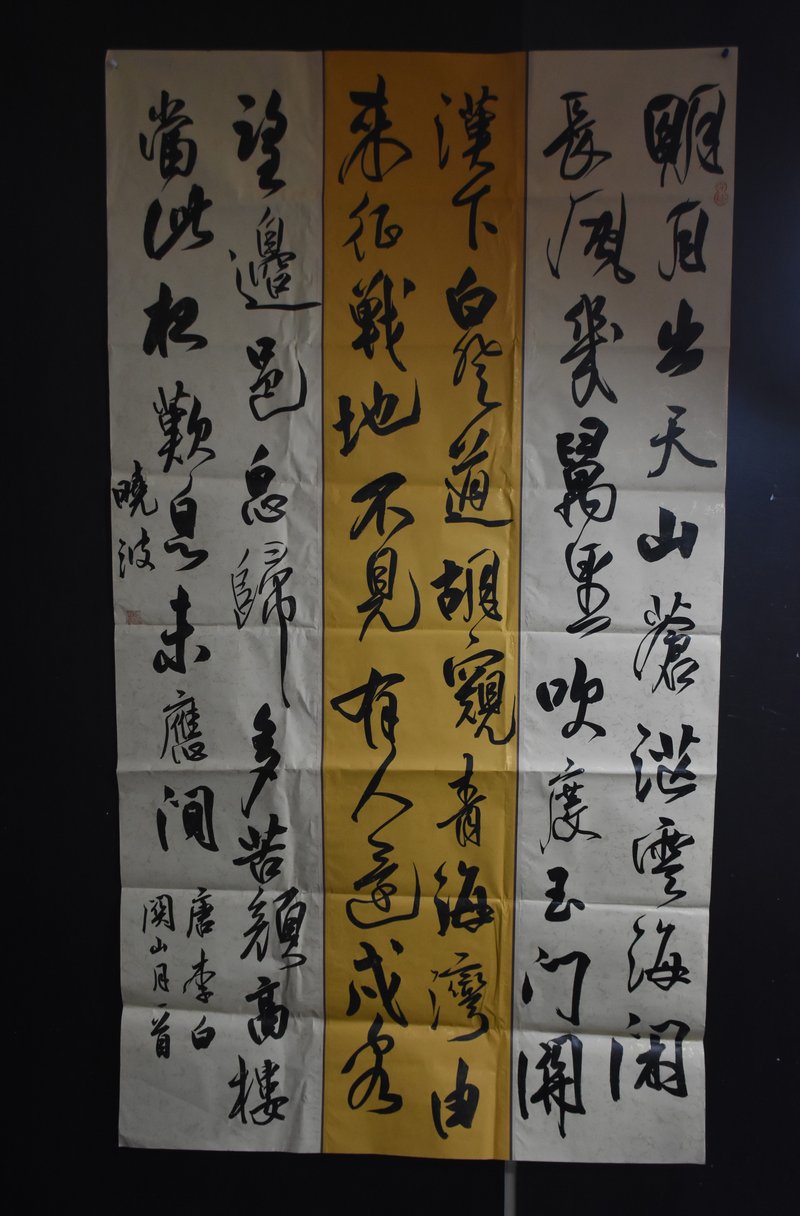 明月出天山蒼茫雲海间
長風幾萬里吹度玉门關
漢下白登道胡窺青海灣由
来征戰地不見有人還戍客
望邊邑思歸多苦顔高樓
當此夜歎息未應閒
唐李白
關山月一首
曉波